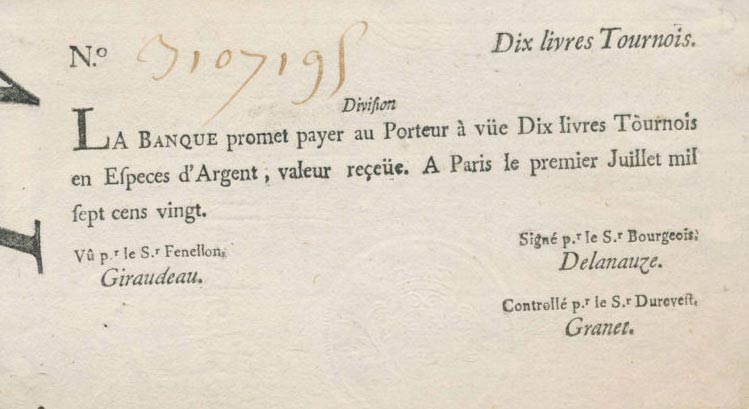 N.º 3107195 Dix livres Tournois.
Diviſion
LA BANQUE promet payer au Porteur à vüe Dix livres Tòurnois
en Eſpeces d'Argent ; valeur reçeüe. A Paris le premier Juillet mil
ſept cens vingt.
Vû p.r le S.r Fenellon.
Giraudeau.
Signé p.r le S.r Bourgeois.
Delanauze.
Controllé p.r le S.r Dureveſt.
Granet.